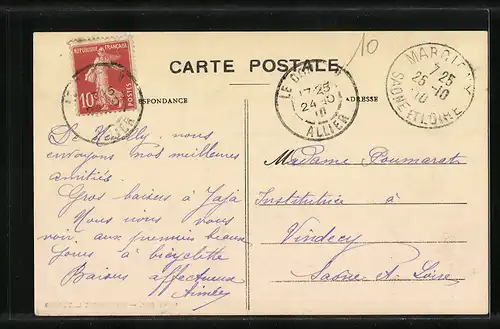 10
CARTE POSTALE
RÉPUBLIQUE FRANÇAISE
10c
POSTES
LE DONJON
17-25
24-10
10
ALLIER
MARCIGNY
25
25-10
10
SAONE ET LOIRE
RESPONDANCE
ADRESSE
De Neuilly, nous
envoyons nos meilleures
amitiés.
Gros baisers à Jaja
Nous nous vous
voir, aux premiers beaux
jours à bicyclette
Baisers affectueux
Aimée
Madame Poumarat
Institutrice à
Vindecy
Saône-et-Loire